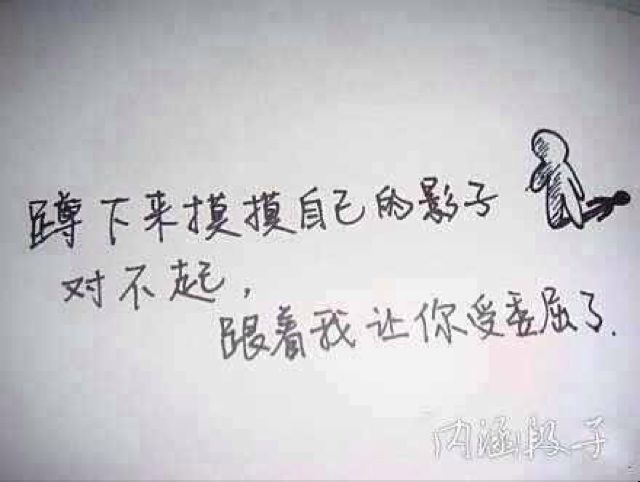 蹲下来摸摸自己的影子
对不起，
跟着我让你受委屈了.
内涵段子